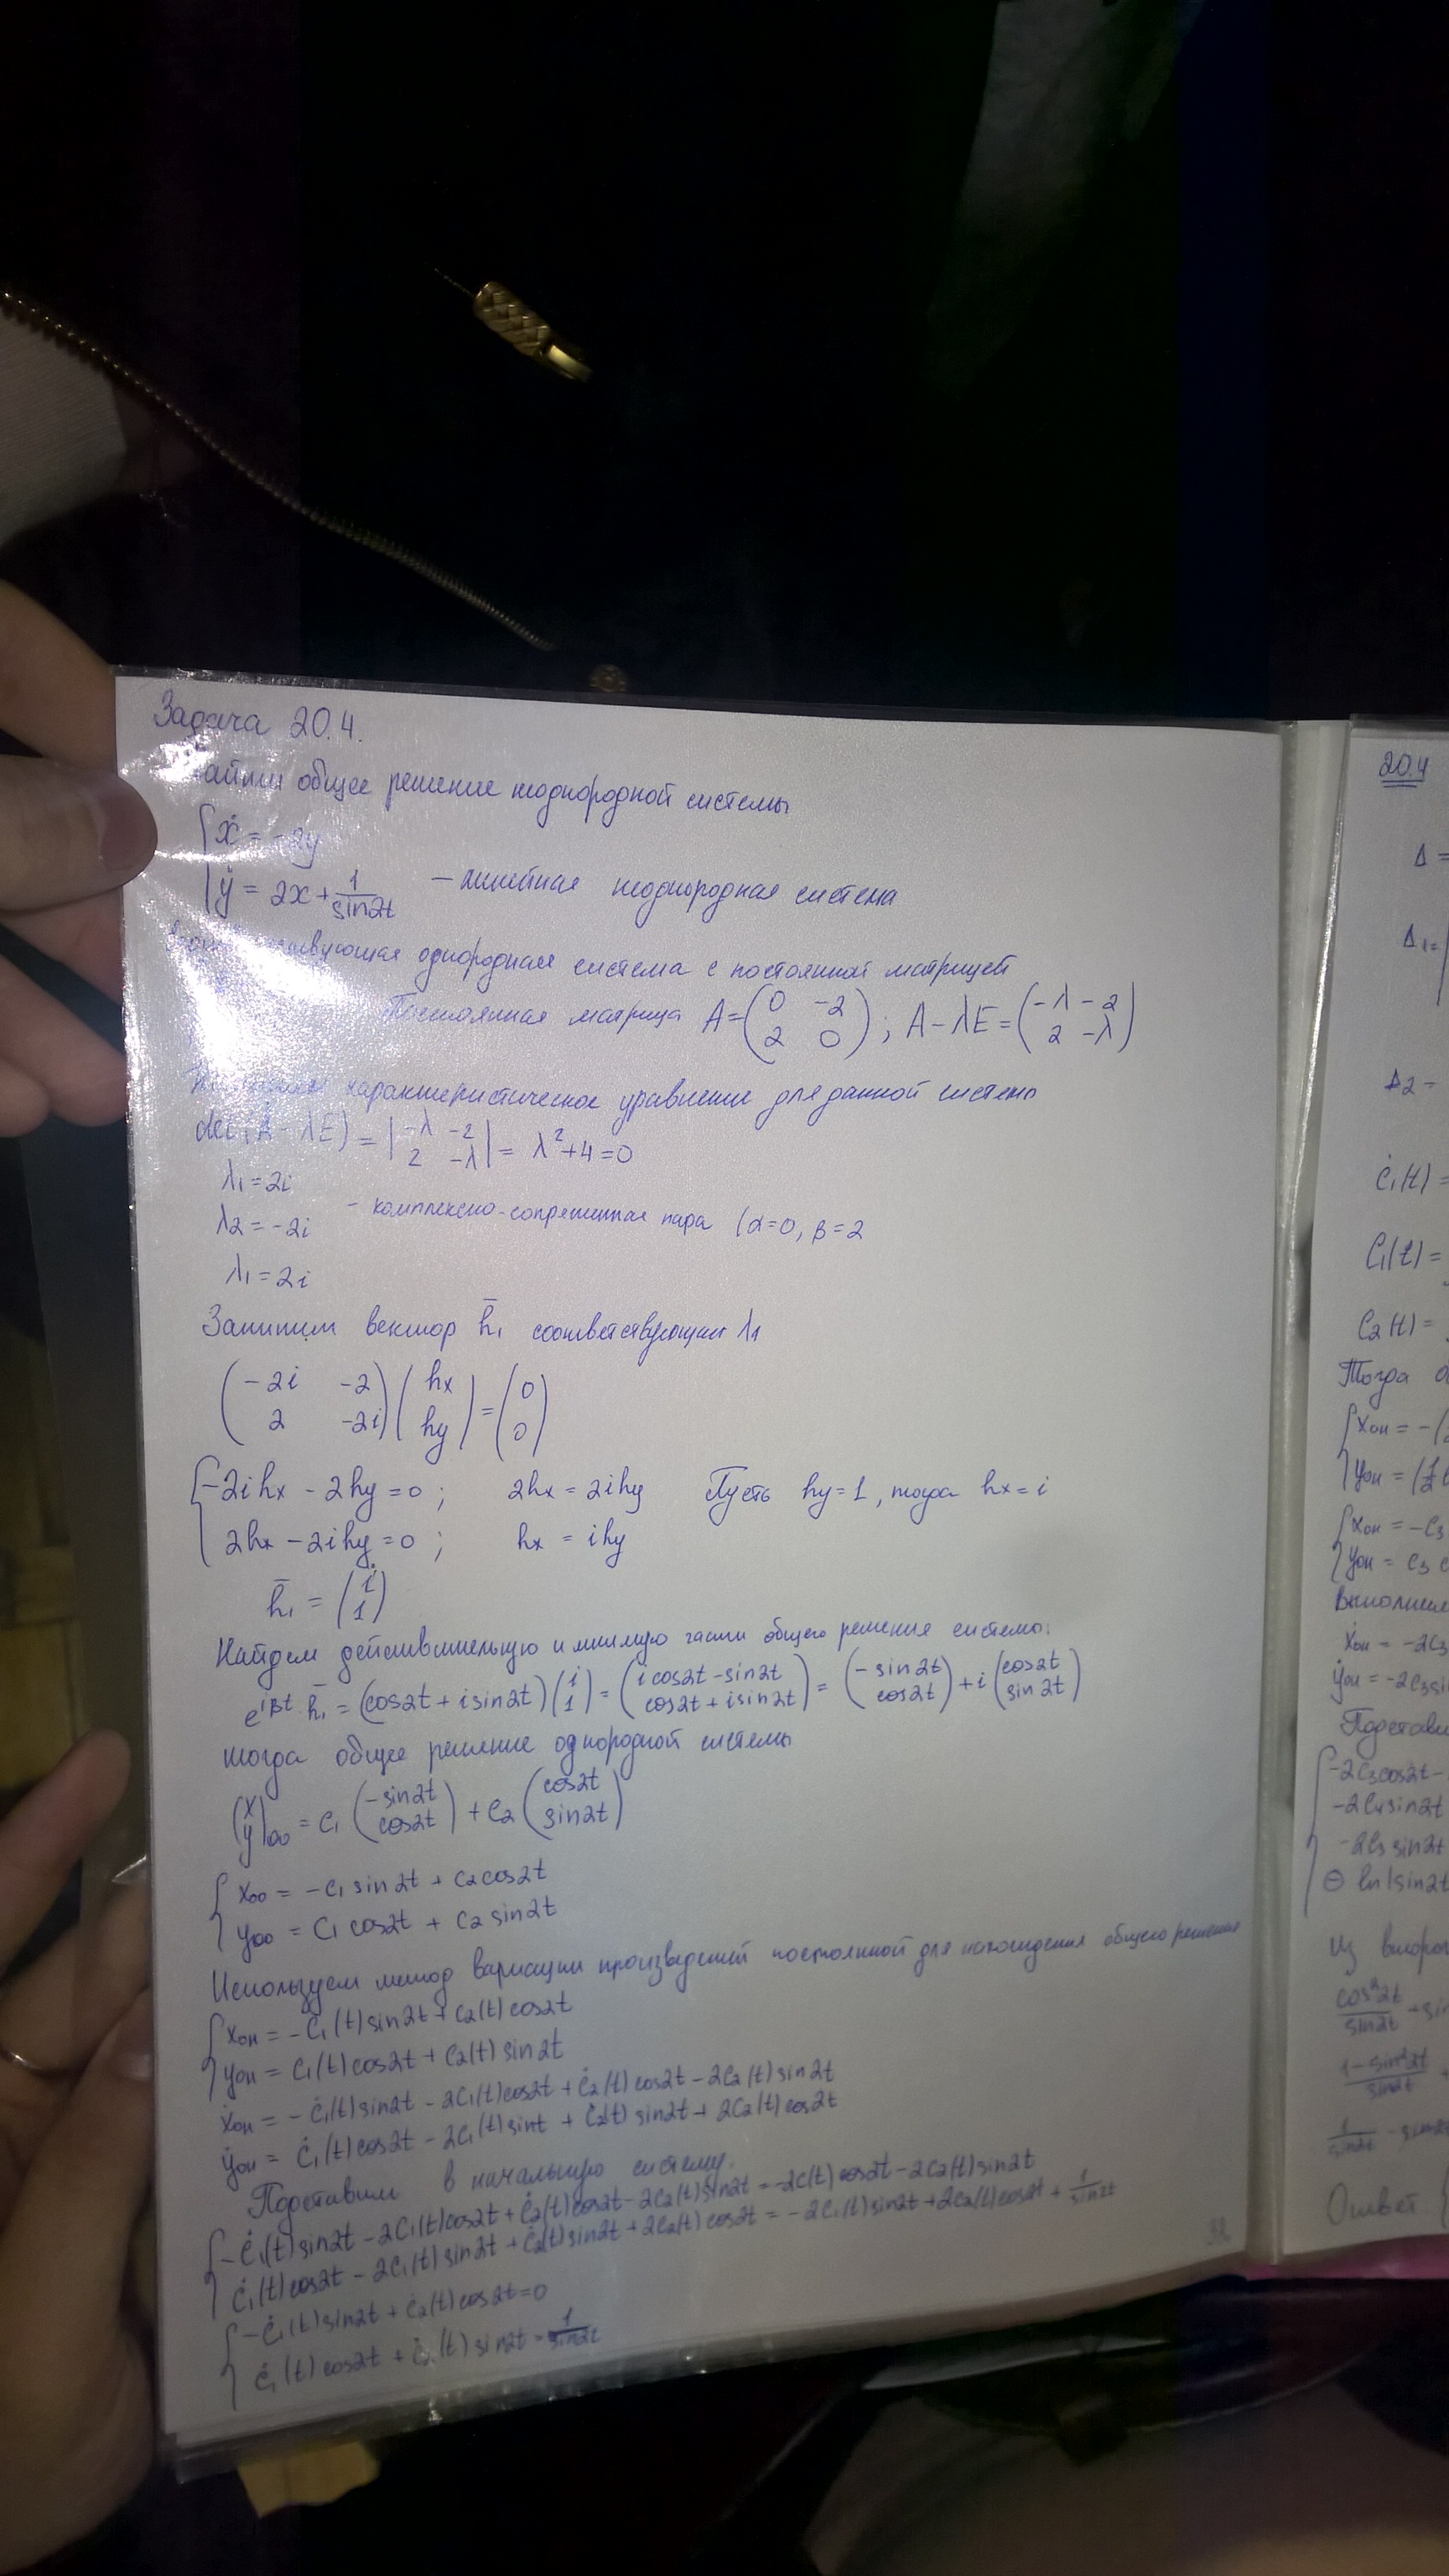 Задача 20.4.
общее решение неоднородной системы
{ẋ = -2y
{ẏ = 2x + 1/sin2t — линейная неоднородная система
однородная система с постоянной матрицей
Постоянная матрица A = (0 -2; 2 0); A-λE = (-λ -2; 2 -λ)
характеристическое уравнение для данной системы
det(A-λE) = |-λ -2; 2 -λ| = λ²+4=0
λ1=2i
λ2=-2i - комплексно-сопряженная пара (α=0, β=2
λ1=2i
Запишем вектор h̄1 соответствующий λ1
(-2i -2; 2 -2i)(hx; hy) = (0; 0)
{-2ihx - 2hy=0; 2hx = 2ihy Пусть hy=1, тогда hx=i
{2hx - 2ihy=0; hx = ihy
h̄1 = (i; 1)
Найдем действительную и мнимую части общего решения системы:
e^iβt h̄1 = (cos2t + isin2t)(i; 1) = (i cos2t - sin2t; cos2t + isin2t) = (-sin2t; cos2t) + i(cos2t; sin2t)
тогда общее решение однородной системы
(x; y)oo = C1(-sin2t; cos2t) + C2(cos2t; sin2t)
{xoo = -C1 sin2t + C2 cos2t
{yoo = C1 cos2t + C2 sin2t
Используем метод вариации постоянной для нахождения общего решения
{xон = -C1(t)sin2t + C2(t)cos2t
{yон = C1(t)cos2t + C2(t)sin2t
ẋон = -Ċ1(t)sin2t - 2C1(t)cos2t + Ċ2(t)cos2t - 2C2(t)sin2t
ẏон = Ċ1(t)cos2t - 2C1(t)sint + Ċ2(t)sin2t + 2C2(t)cos2t
Подставим в начальную систему.
{-Ċ1(t)sin2t - 2C1(t)cos2t + Ċ2(t)cos2t - 2C2(t)sin2t = -2C(t)cos2t - 2C2(t)sin2t
{Ċ1(t)cos2t - 2C1(t)sin2t + Ċ2(t)sin2t + 2C2(t)cos2t = -2C1(t)sin2t + 2C2(t)cos2t + 1/sin2t
{-Ċ1(t)sin2t + Ċ2(t)cos2t=0
{Ċ1(t)cos2t + Ċ2(t)sin2t = 1/sin2t
20.4
Δ =
Δ1 =
Δ2 =
Ċ1(t) =
C1(t) =
C2(t) =
Тогда
{xон = -(
{yон = (
{xон = -C3
{yон = C3
ẋон = -2C3
ẏон = -2C3 si
{-2C3cos2t -
-2C4sin2t
-2C3 sin2t
ln|sin2t
Из
cos²2t/sin2t - sin
1-sin²2t/sin2t
1/sin2t - sin2t
Ответ